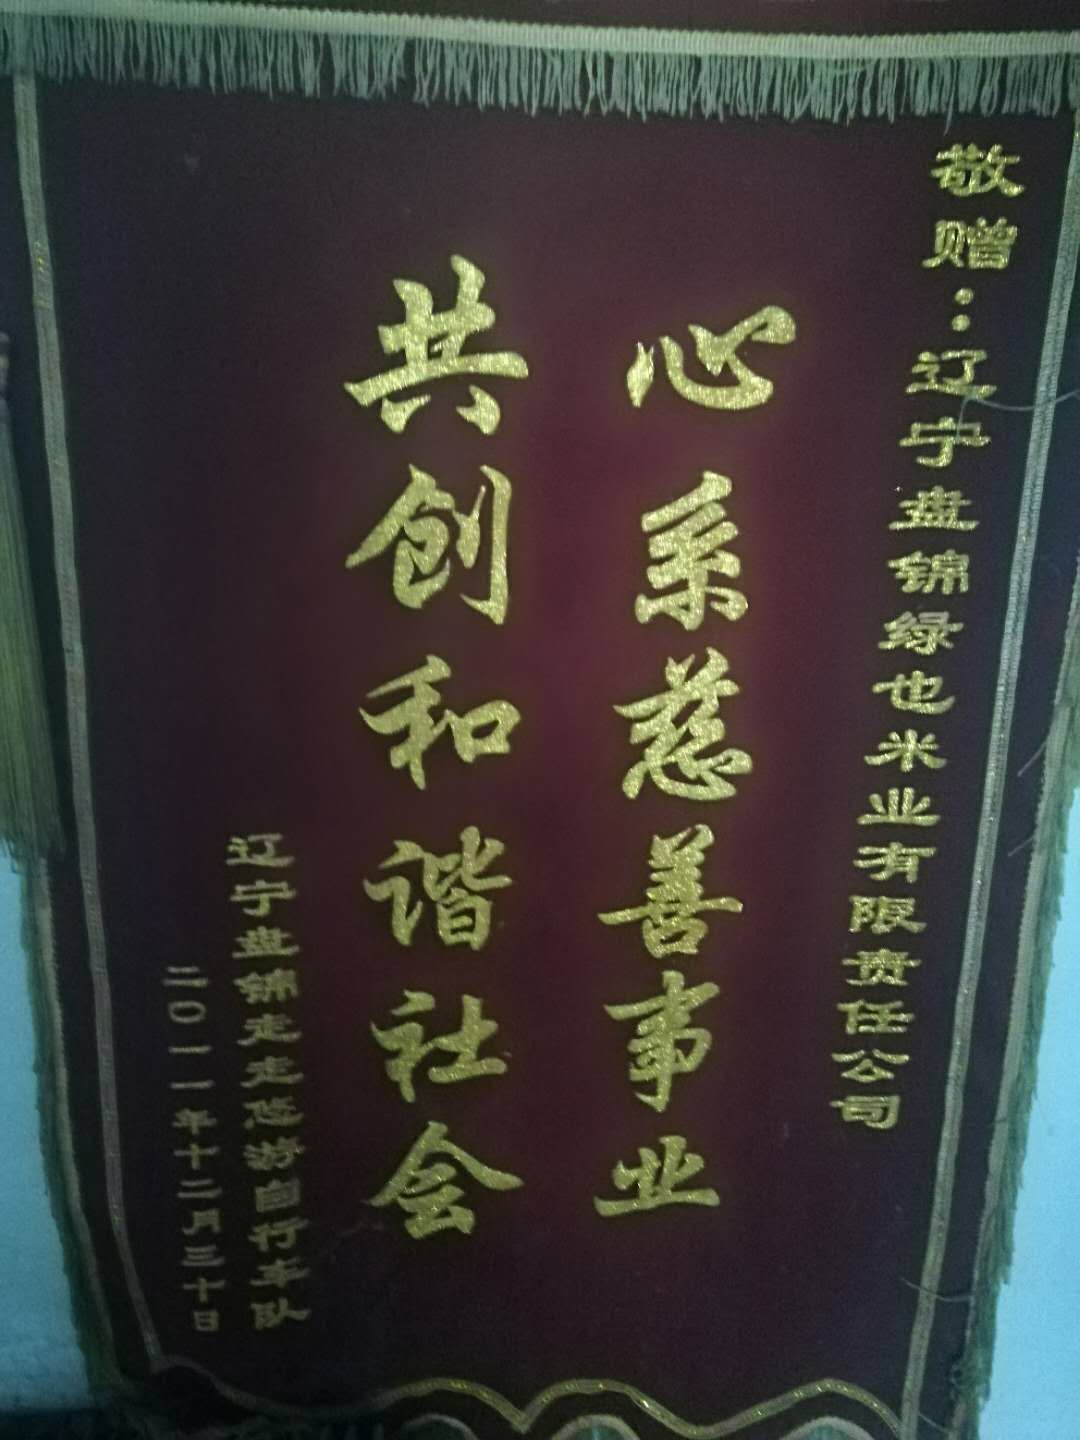 敬赠：辽宁盘锦绿也米业有限责任公司
心系慈善事业
共创和谐社会
辽宁盘锦走走悠游自行车队
二〇一一年十二月三十日